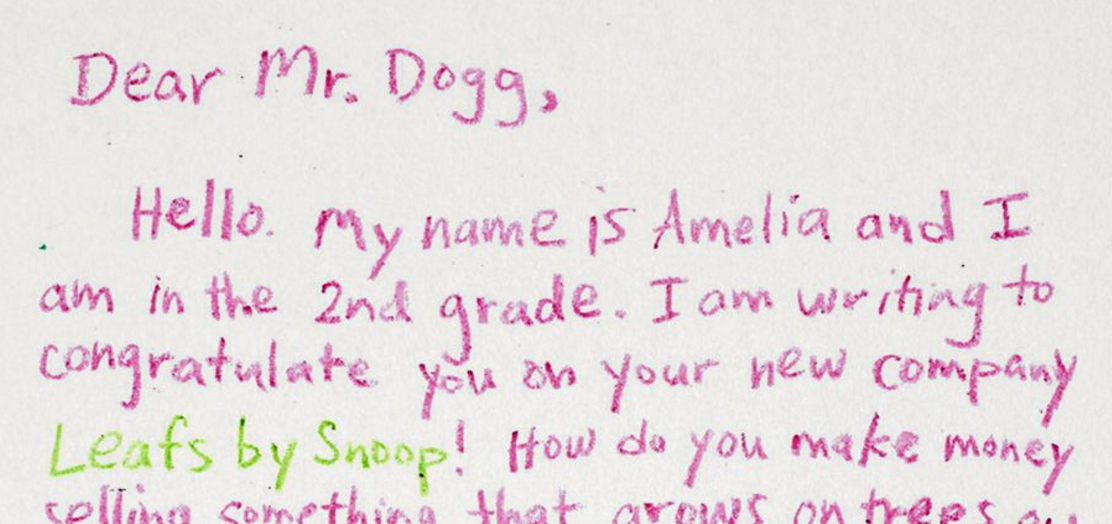 Dear Mr. Dogg,
Hello. My name is Amelia and I
am in the 2nd grade. I am writing to
congratulate you on your new company
Leafs by Snoop! How do you make money
selling something that grows on trees